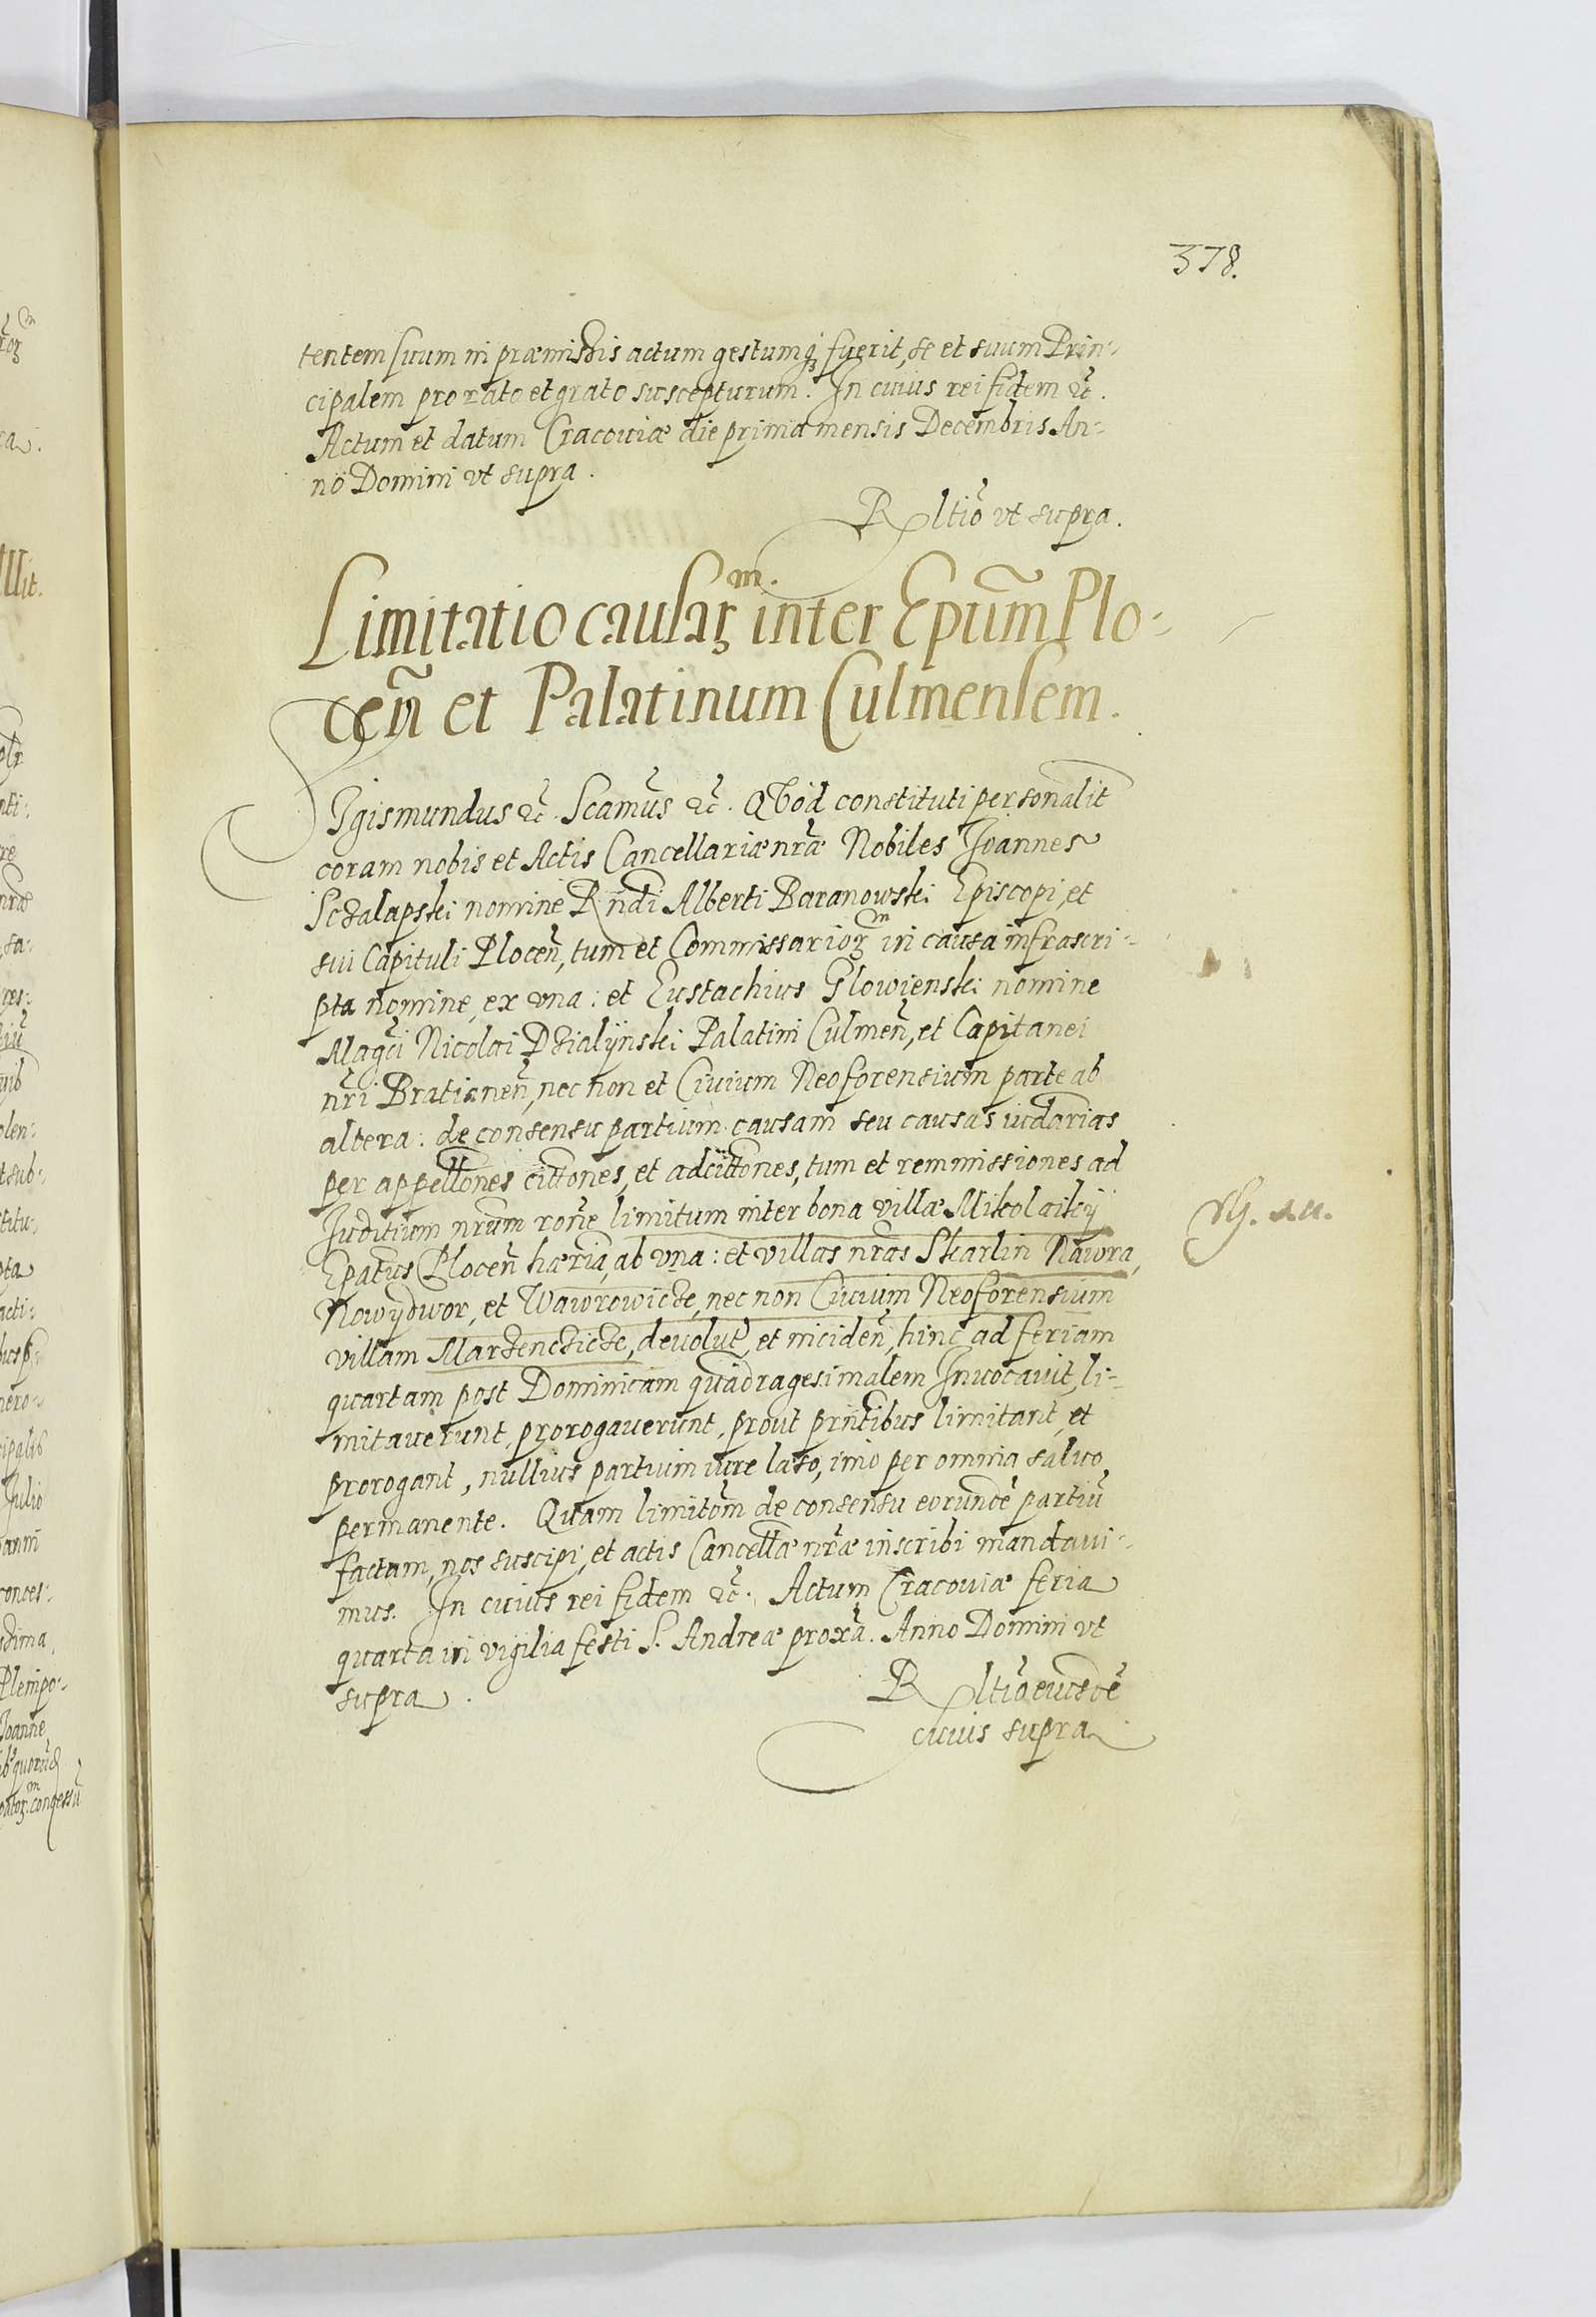 378.
tentem suum in præmissis actum gestumq₃ fuerit, se et suum Prin-
cipalem pro rato et grato suscepturum. In cuius rei fidem ꝛc̃.
Actum et datum Cracouiæ die prima mensis Decembris An-
nö Domini vt supra.
Rltiõ vt supra.
Limitatio causarꝫᵐ. inter Epũm Plo-
ceñ et Palatinum Culmensem.
Sigismundus ꝛc̃. Scamũs ꝛc̃. Qvöd constituti personalit
coram nobis et Actis Cancellariæ nr̃æ Nobiles Joannes
Sczalapski nomine Rñdi Alberti Baranowski Episcopi, et
sui Capituli Ploceñ, tum et Commissariorꝫᵐ in causa infrascri-
pta nomine, ex vna: et Eustachius Glowienski nomine
Magc̃i Nicolai Dzialijnski Palatini Culmeñ, et Capitanei
nr̃i Bratianeñ, nec non et Ciuium Neoforensium parte ab
altera: de consensu partium causam seu causas iudarias
per appelltones cittones, et adcittones, tum et remmissiones ad
Juditium nrũm roñe limitum inter bona villæ Mikolaikij
Epatus Ploceñ hæria, ab vna: et villas nr̃as Skarlin Nawra,
Nowydwor, et Wawrowicze, nec non Ciuium Neoforensium
villam Marzencziczе, deuolut̃, et incideñ, hinc ad feriam
quartam post Dominicam quadragesimalem Inuocauit, li-
mitauerunt, prorogauerunt, prout prñtibus limitant, et
prorogant, nullius partium iure læso, imo per omnia saluo
permanente. Quam limitõm de consensu eorundẽ partiũ
factam, nos suscipi, et actis Cancellæ nr̃æ inscribi mandaui-
mus. In cuius rei fidem ꝛc̃. Actum Cracouiæ feria
quarta in vigilia festi S. Andreæ proxã. Anno Domini vt
supra.
Rltiõ eiusdẽ
cuius supra